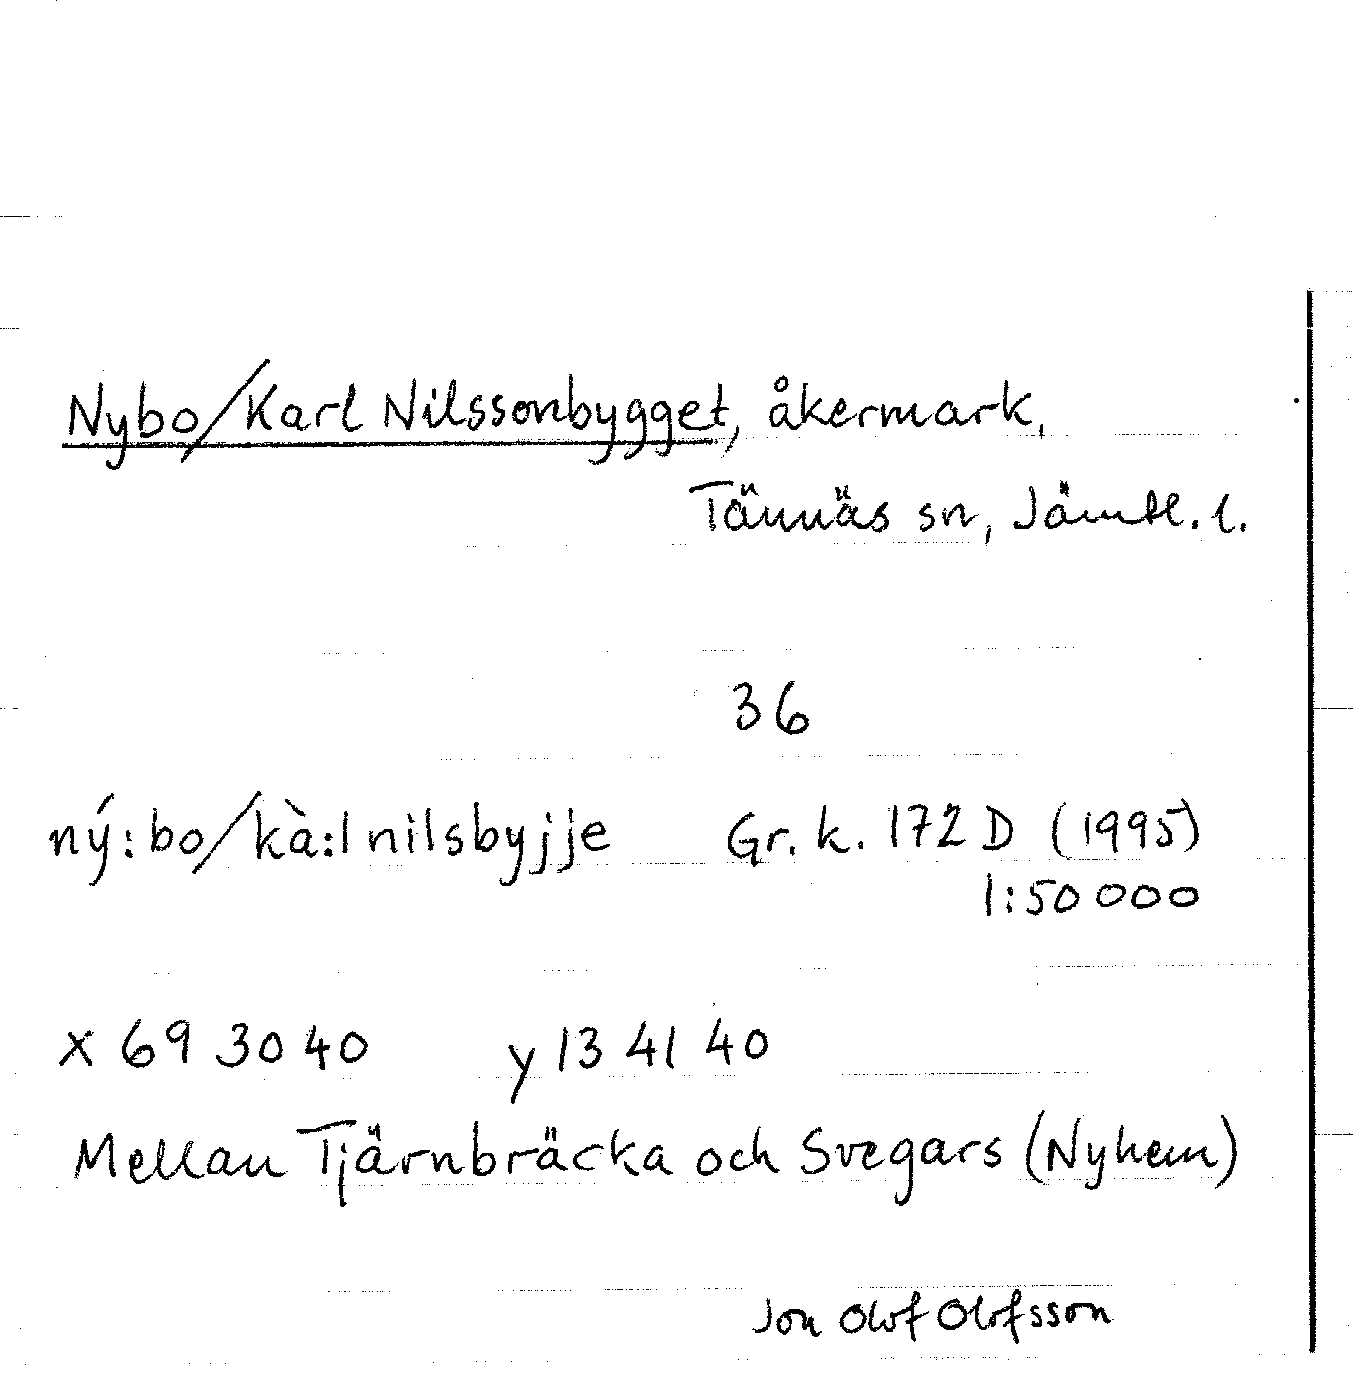 Nybo/Karl Nilssonbygget, åkermark,
Tännäs sn, Jämtl. l.
36
ný:bo/kà:l nilsbyjje Gr. k. 172 D (1995)
1:50 000
x 69 30 40 y 13 41 40
Mellan Tjärnbräcka och Svegars (Nyhem)
Jon Olof Olofsson